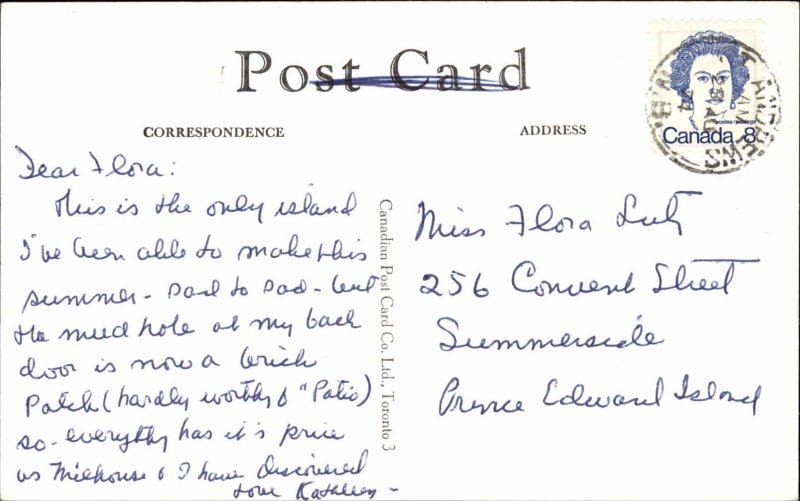 Post Card
CORRESPONDENCE
ADDRESS
postes/postage
Canada 8
ST ANDREWS
N.B.
74
Dear Flora:
This is the only island
I've been able to make this
summer - sad to sad - but
the mud hole at my back
door is now a brick
patch (hardly worthy of "Patio")
so - everything has it's price
as Milhouse & I have discovered
Love Kathleen -
Canadian Post Card Co. Ltd., Toronto 3
Miss Flora
256 Convent Street
Summerside
Prince Edward Island